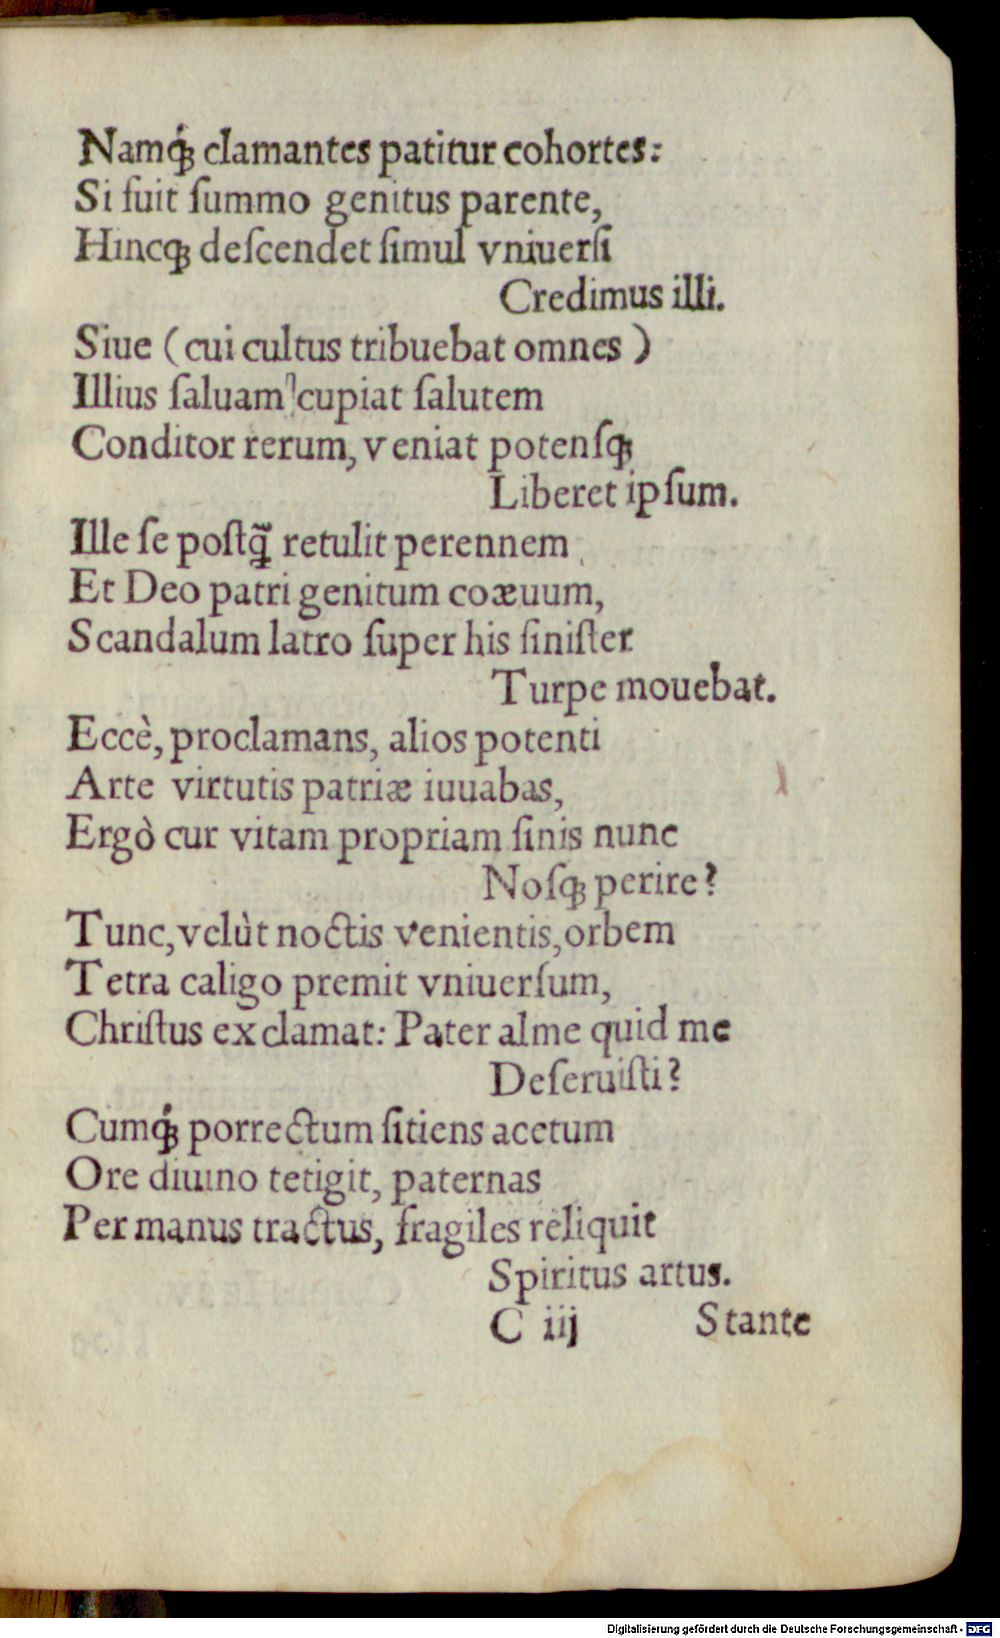 Namq́ꝫ clamantes patitur cohortes:
Si fuit ſummo genitus parente,
Hincqꝫ deſcendet ſimul vniuerſi
Credimus illi.
Siue (cui cultus tribuebat omnes)
Illius ſaluam cupiat ſalutem
Conditor rerum, veniat potenſqꝫ
Liberet ipſum.
Ille ſe poſtq̃ retulit perennem
Et Deo patri genitum coæuum,
Scandalum latro ſuper his ſiniſter
Turpe mouebat.
Eccè, proclamans, alios potenti
Arte virtutis patriæ iuuabas,
Ergò cur vitam propriam ſinis nunc
Noſqꝫ perire?
Tunc, velùt noctis venientis, orbem
Tetra caligo premit vniuerſum,
Chriſtus exclamat: Pater alme quid me
Deſeruiſti?
Cumq́ꝫ porrectum ſitiens acetum
Ore diuino tetigit, paternas
Per manus tractus, fragiles reliquit
Spiritus artus.
C iij Stante
Digitalisierung gefördert durch die Deutsche Forschungsgemeinschaft - DFG